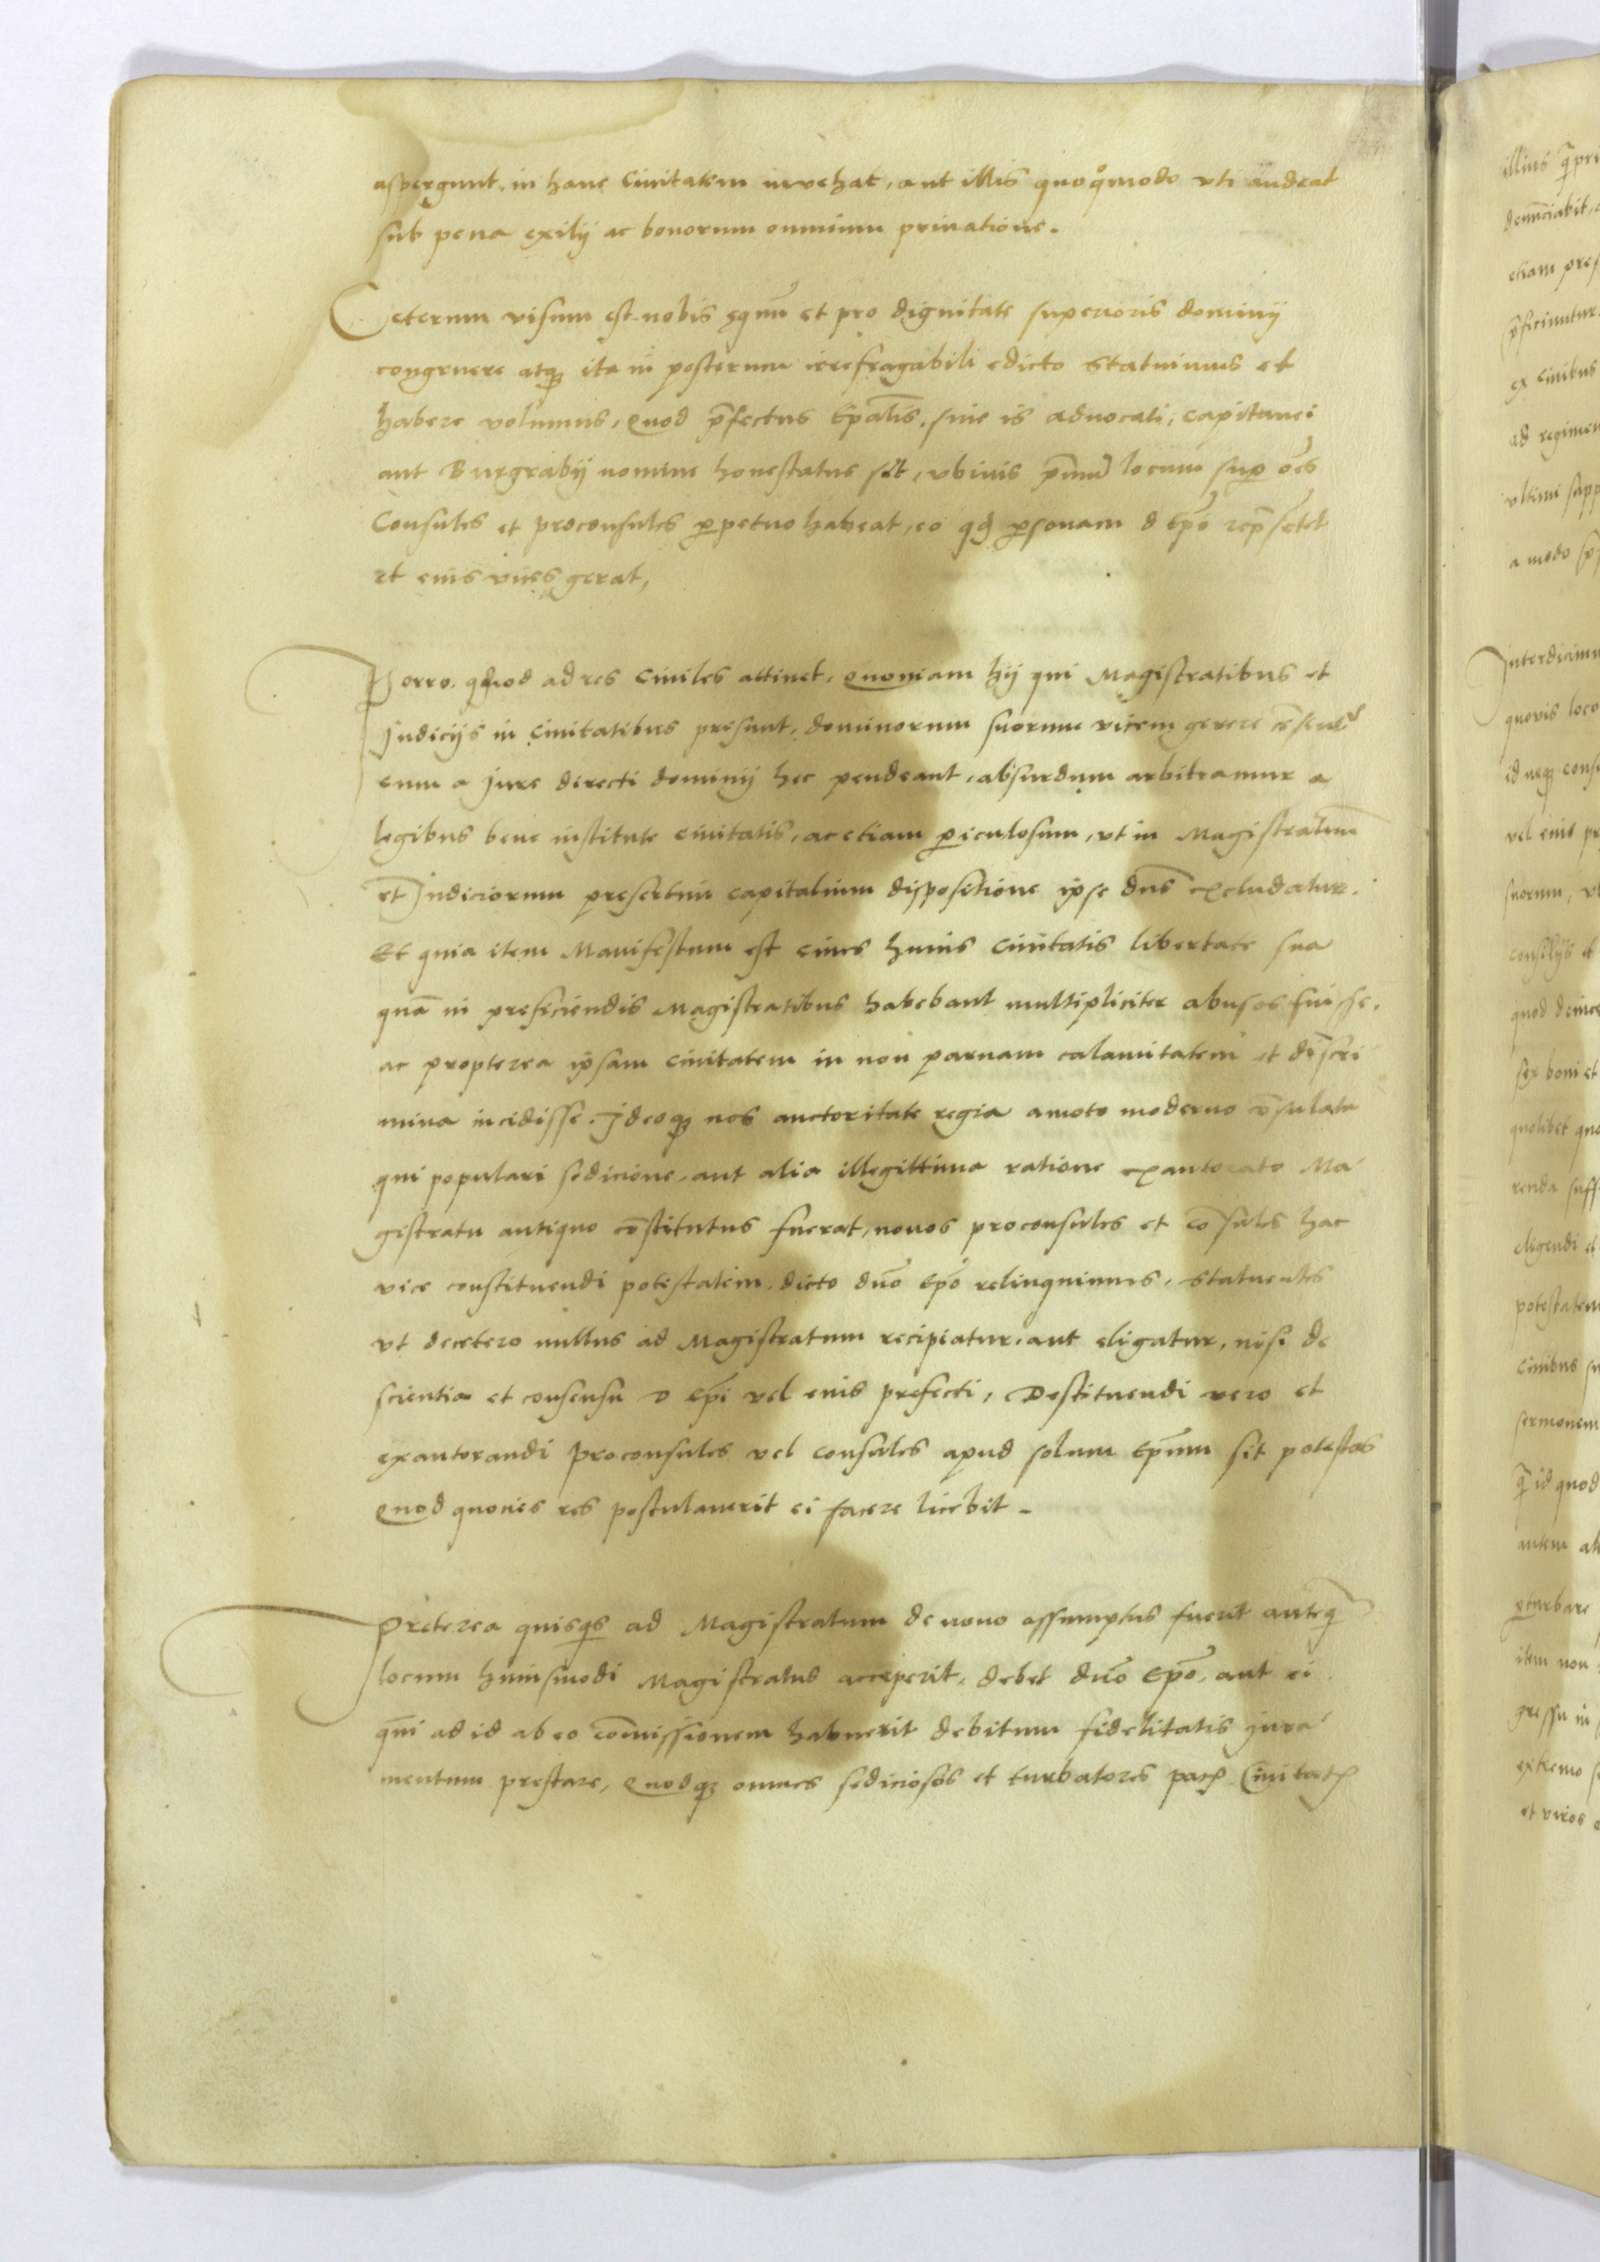 aspergunt, in hanc Ciuitatem inuehat, aut illis quoqͦmodo vti audeat
sub pena exilij ac bonorum omnium priuatione.
Ceterum visum est nobis equū et pro dignitate superioris dominij
congruere atqꝫ ita in posterum irrefragabili edicto Statuimus et
habere volumus, Quod p̄fectus Ep̄alis, siue is aduocati, Capitanei
aut Burgrabij nomine honestatus sit, vbiuis primū locum suꝑ oēs
Consules et proconsules ꝑpetuo habeat, eo qđ ꝑsonam d Ep̄o rep̄sētet
et eius vices gerat,
Porro quod ad res Ciuiles attinet, Quoniam hij qui Magistratibus et
Judicijs in Ciuitatibus presunt, dominorum suorum vicem gerere cēsentʳ
cum a Jure directi dominij hec pendeant, absurdum arbitramur a
legibus bene institute ciuitatis, ac etiam ꝑiculosum, vt in Magistratuum
et Judiciorum presertim capitalium dispositione ipse dn̄s excludatur.
Et quia item Manifestum est ciues huius Ciuitatis libertate sua
quā in preficiendis Magistratibus habebant multipliciter abusos fuisse,
ac propterea ipsam Ciuitatem in non paruam calamitatem et discri
mina incidisse. Ideoqꝫ nos auctoritate regia amoto moderno cōsulatu
qui populari sedicione, aut alia illegittima ratione exautorato Ma
gistratu antiquo cōstitutus fuerat, nouos proconsules et cōsules hac
vice constituendi potestatem, dicto dn̄o Ep̄o relinquimus, Statuentes
vt decetero nullus ad Magistratum recipiatur, aut eligatur, nisi de
scientia et consensu d Ep̄i vel euis prefecti, Destituendi vero et
exautorandi proconsules vel consules apud solum Ep̄um sit potestas
Quod quocies res postulauerit ei facere licebit.
Preterea quisqis ad Magistratum de nouo assumptus fuerit anteq̄
locum huiusmodi Magistratus acceperit, debet dn̄o Ep̄o, aut ei
qui ad id ab eo cōmissionem habuerit debitum fidelitatis jura
mentum prestare, Quodqꝫ omnes sediciosos et turbatores pacꝭ Ciuitatꝭ
illius
denūciabit
etiam
p̄ficiuntur
ex Ciuibus
ad regimen
vltimi
a modo
quouis loco
id neqꝫ
vel eius
suorum,
consilijs et
quod
boni et
quolibet
renda
eligendi et
potestatem
Ciuibus
sermonem
id quod
autem
ꝑturbare
item non
gressu in
extremo
et viros